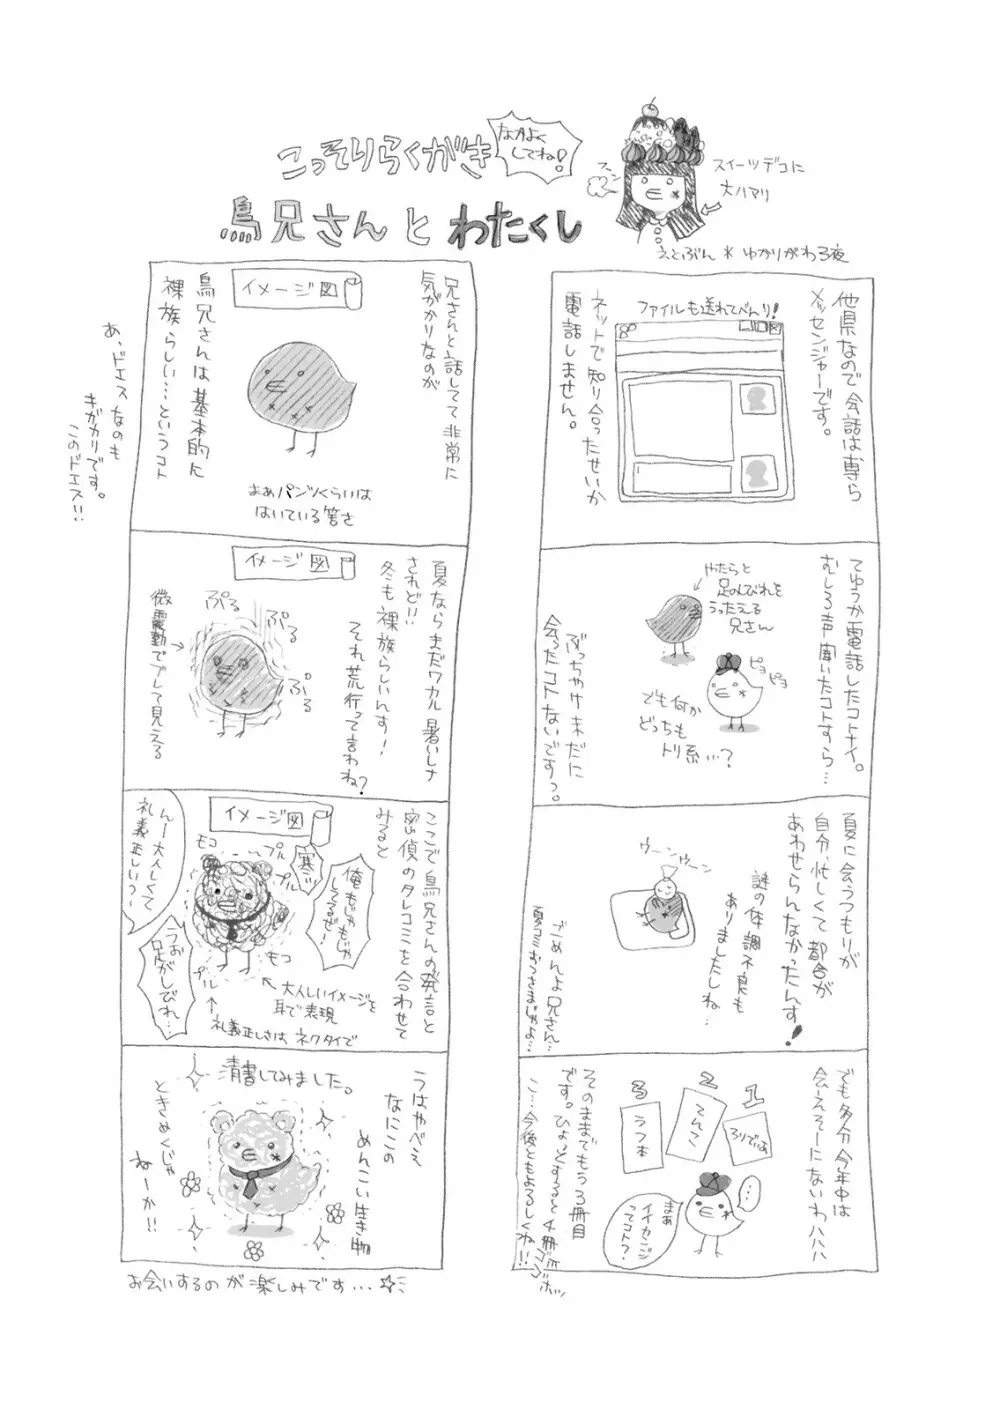 こっそりらくがき
なかよくしてね!
鳥兄さんとわたくし
フン
スイーツデコに
大ハマり
えとぶん * ゆかりがわる夜
他県なので会話は専ら
メッセンジャーです。
ファイルも送れてべんり!
ネットで知り合ったせいか
電話しません。
てゆうか電話したコトナイ。
むしろ声聞いたコトすら…
やたらと
足のしびれを
うったえる
兄さん
ピヨ
ピヨ
でも何か
どっちも
トリ系…?
ぶっちゃけまだに
会ったコトないですっ。
夏に会うつもりが
自分、忙しくて都合が
あわせらんなかったんす!
ウーンウーン
謎の体調不良も
ありましたしね…
ごめんよ兄さん…
夏コミおつさまじゃよ…
でも多分今年中は
会ーえそーにないわハハハ
1
2
3
ろりでぃあ
てんく
うフ本
…
まぁ
イイセンジ
ってコト?
そのままでもう3冊目
です。ひょっとすると4冊
ゴホゴホッ
こ…今後ともよろしくね!!
兄さんと話してて非常に
気がかりなのが
イメージ図
鳥兄さんは基本的に
裸族らしい…というコト
まぁパンツくらいは
はいている筈さ
あ、ドエスなのも
キガカリです。
このドエス!!
夏ならまだワカル 暑いしさ
されど!!
冬も裸族らしいんす!
それ荒行って言わね?
イメージ図
ぷる
ぷる
ぷる
微震動でブレて見える
ここで鳥兄さんの発言と
密偵のタレコミを合わせて
みると
イメージ図
モコ
プル
プル
寒ッ
俺もじゃもじゃ
してるぜ!
んー大人しくて
礼義正しい?
うお
足がしびれ…
モコ
プル
大人しいイメージを
耳で表現
礼義正しさは、ネクタイで
うはやべえ
なにこの
めんこい生き物
清書してみました。
ときめくじゃ
ねーか!!
お会いするのが楽しみです…☆